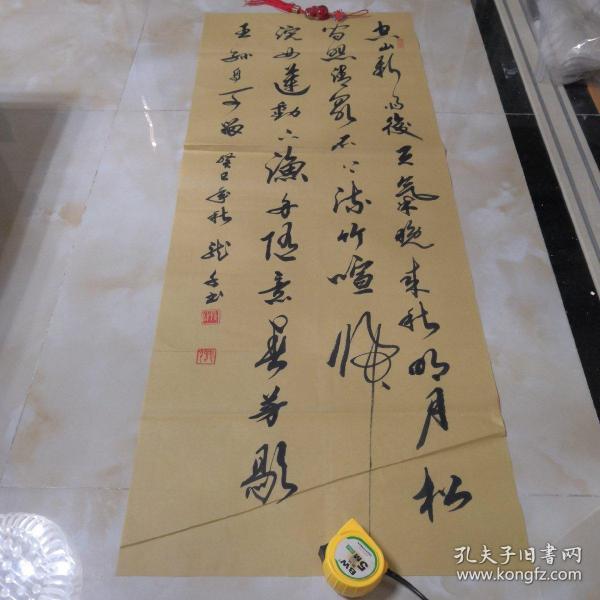 空山新雨後天氣晚来秋明月松
間照清泉石上流竹喧歸
浣女蓮動下漁舟隨意春芳歇
王孫自可留
癸巳年秋
书
5M
BW
孔夫子旧书网
www.kongfz.com